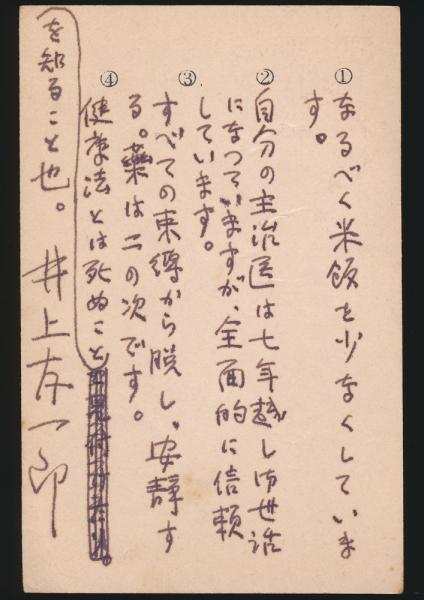 ①
なるべく米飯を少なくしていま
す。
②
自分の主治医は七年越し御世話
になつていますが、全面的に信頼
しています。
③
すべての束縛から脱し、安静す
る。藥は二の次です。
④
健康法とは死ぬこと
を知ること也。井上友一郎